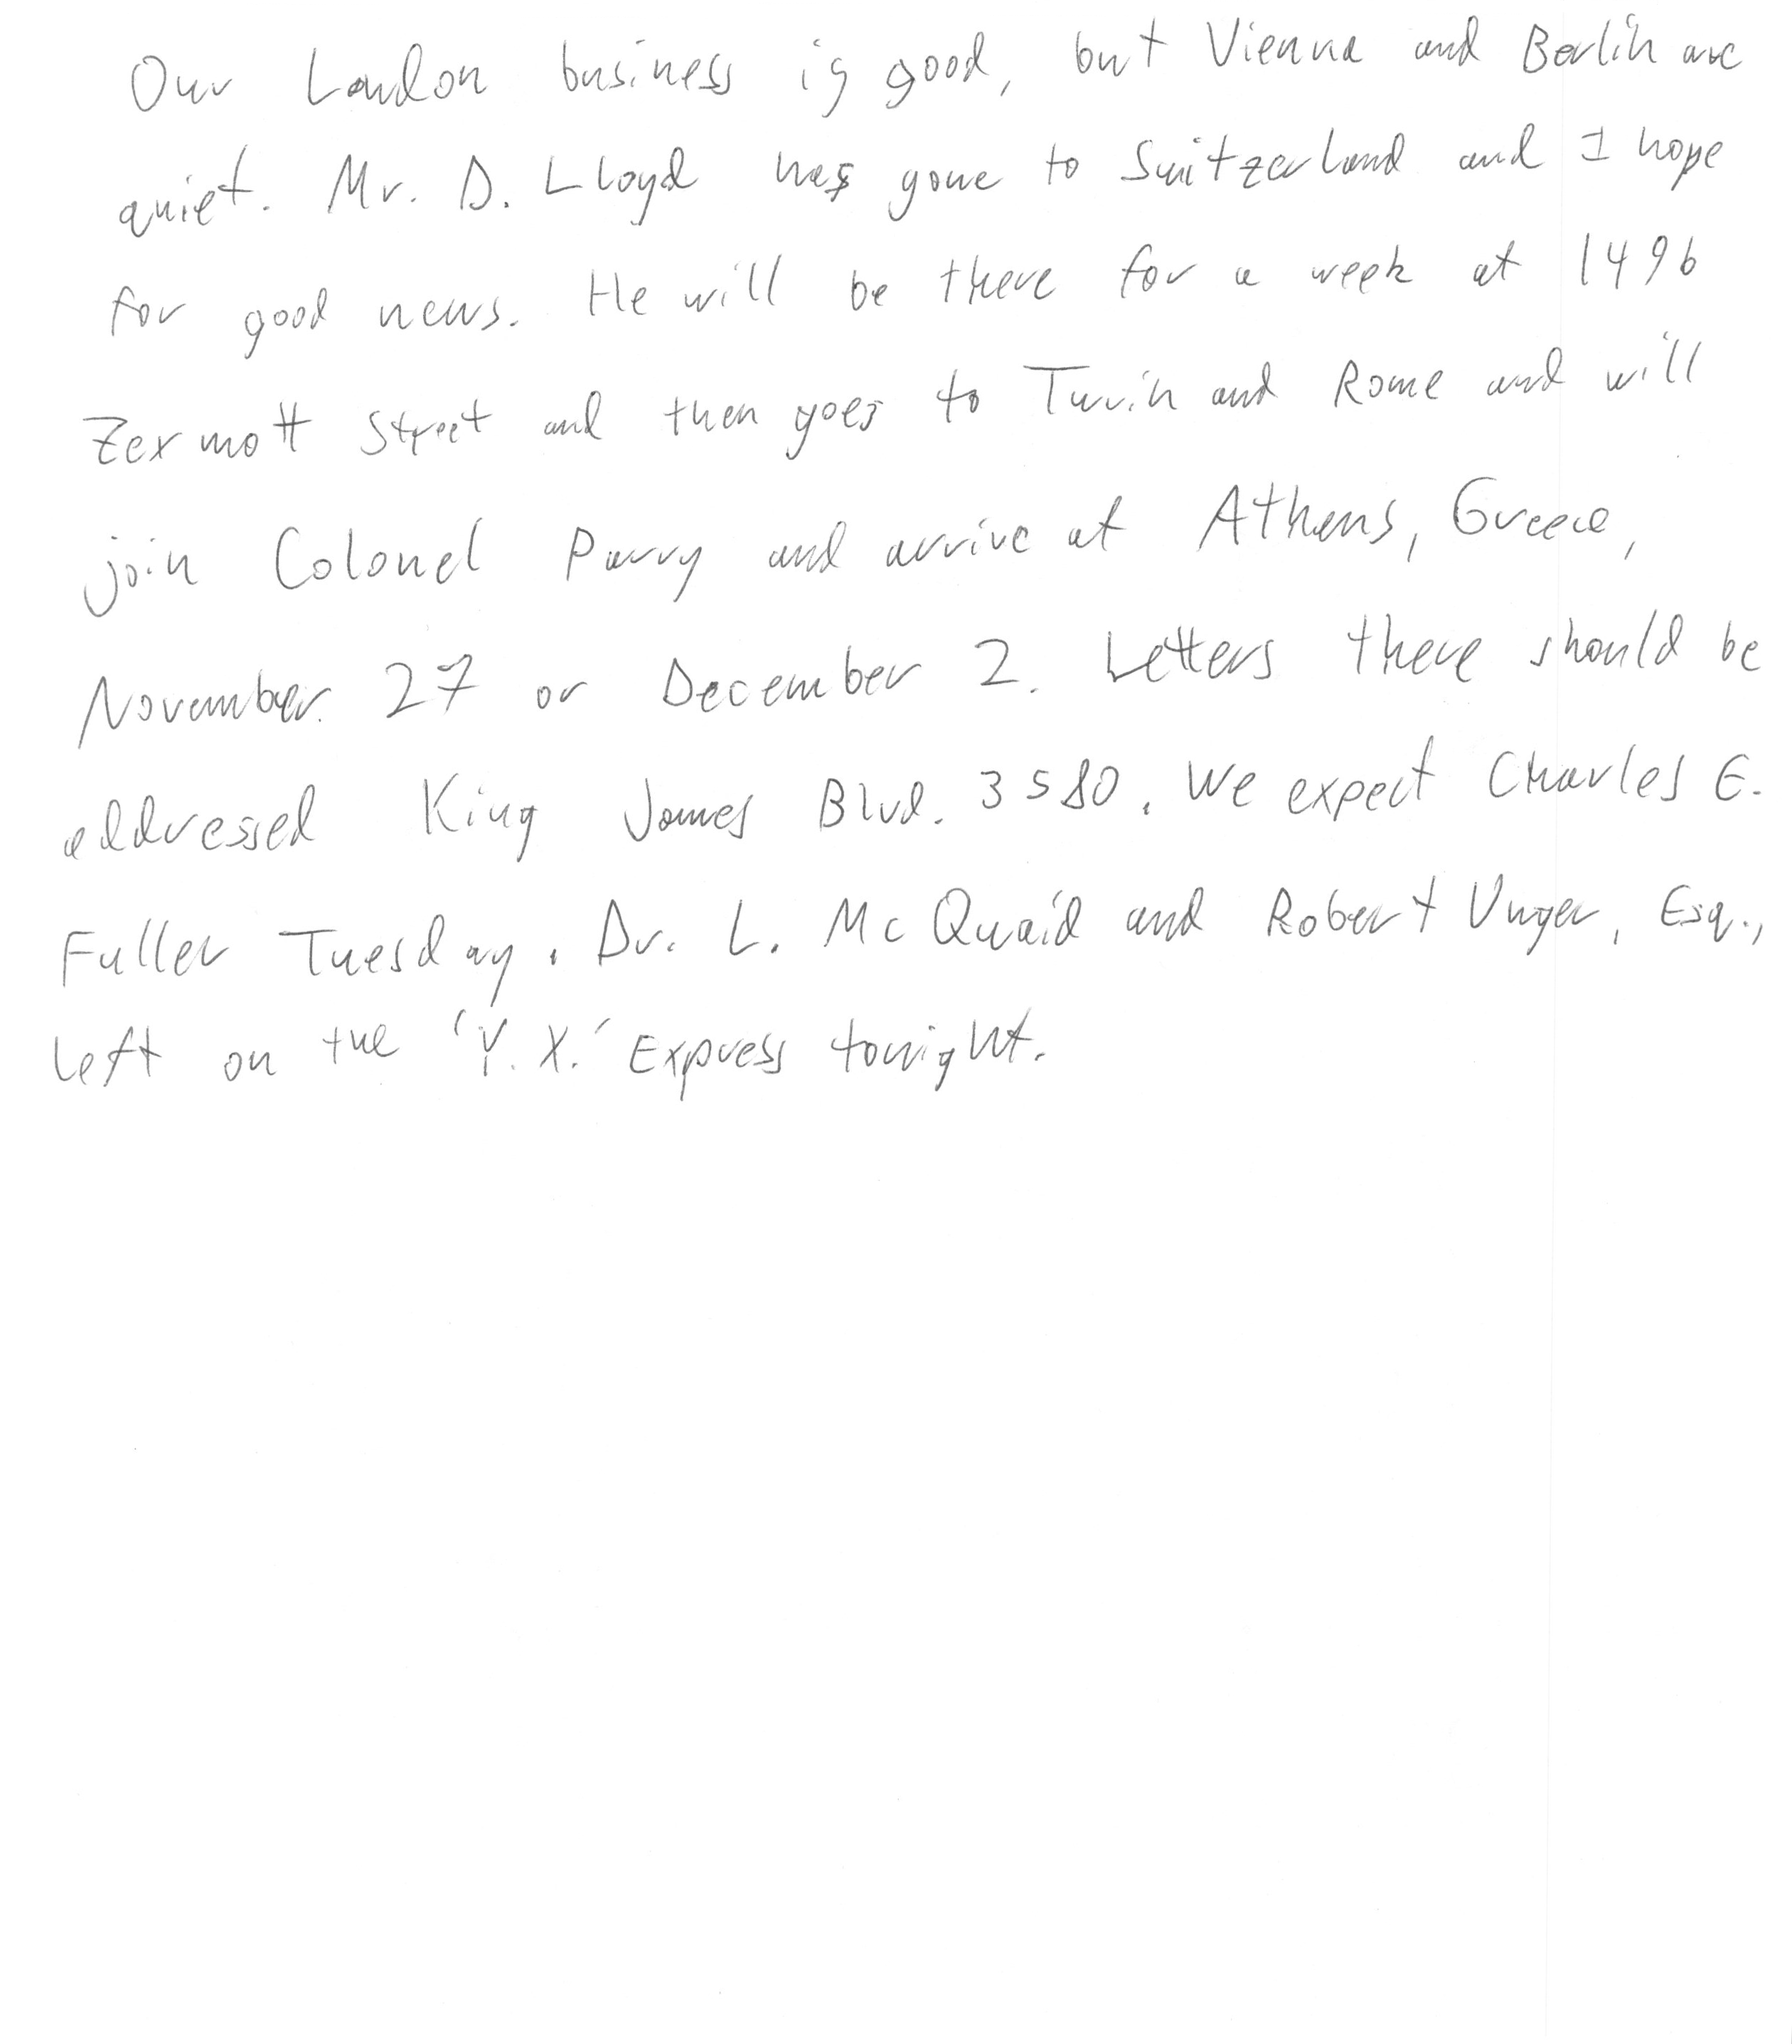 Our London business is good, but Vienna and Berlin are
quiet. Mr. D. Lloyd has gone to Switzerland and I hope
for good news. He will be there for a week at 1496
Zermott Street and then goes to Turin and Rome and will
join Colonel Parry and arrive at Athens, Greece,
November 27 or December 2. Letters there should be
addressed King James Blvd. 3580. We expect Charles E.
Fuller Tuesday. Dr. L. McQuaid and Robert Unger, Esq.,
left on the 'Y. X.' Express tonight.